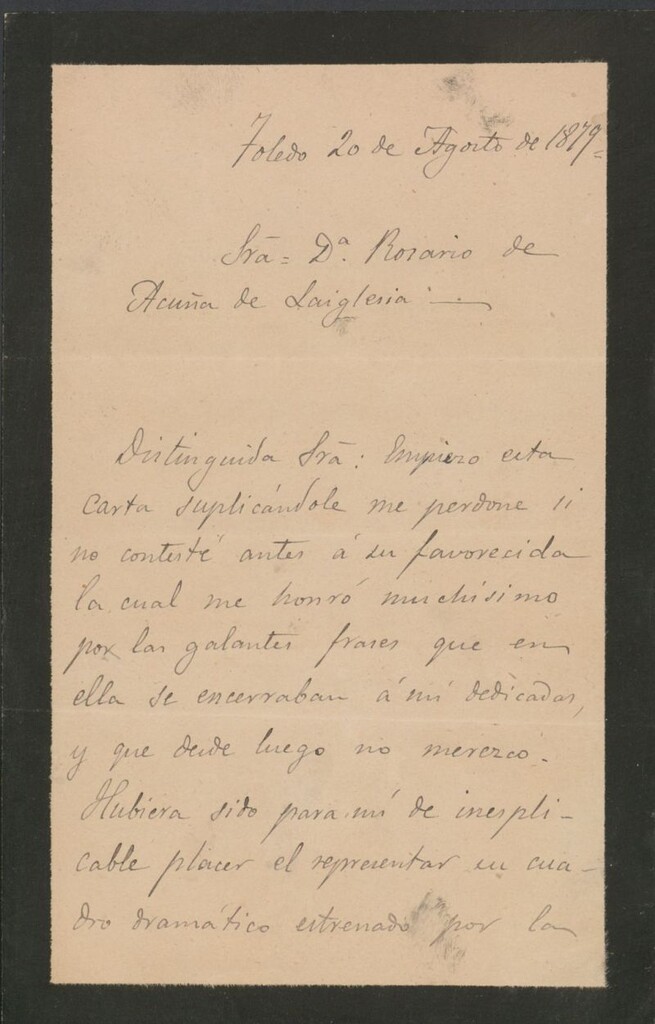 Toledo 20 de Agosto de 1879=
Srã= Dª. Rosario de
Acuña de Laiglesia. —
Distinguida Srã: Empiezo esta
carta suplicándole me perdone si
no contesté antes á su favorecida
la cual me honró muchísimo
por las galantes frases que en
ella se encerraban á mi dedicadas,
y que desde luego no merezco.
Hubiera sido para mi de inespli-
cable placer el representar su cua-
dro dramático estrenado por la